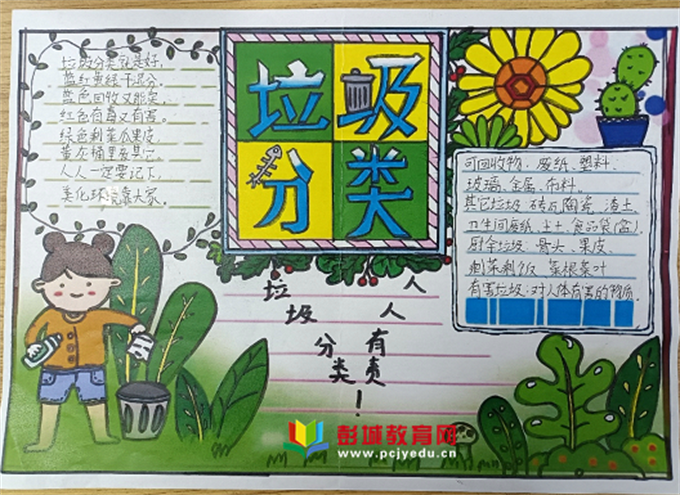 垃圾分类
垃圾分类就是好,
蓝红黄绿干湿分,
蓝色回收又能卖,
红色有毒又有害。
绿色剩菜瓜果皮,
黄灰桶里及其它。
人人一定要记下,
美化环境靠大家。
可回收物:废纸、塑料、
玻璃、金属、布料。
其它垃圾:砖瓦陶瓷、渣土、
卫生间废纸、尘土、食品袋(盒)
厨余垃圾:骨头、果皮、
剩菜剩饭、菜根菜叶
有害垃圾:对人体有害的物质。
垃圾分类
人人有责!
彭城教育网
www.pcjyedu.cn